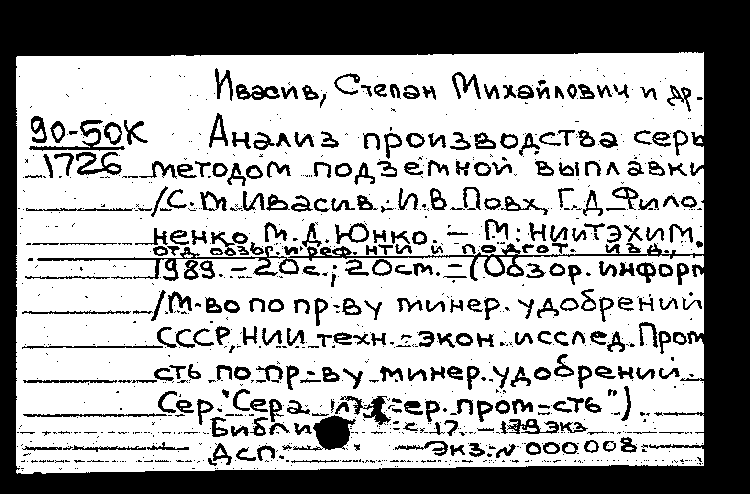 Ивасив, Степан Михайлович и др.
90-50К Анализ производства серы
1726 методом подземной выплавки
/С.М.Ивасив, И.В.Повх, Г.Д.Фило-
ненко, М.Д.Юнко. — М.: НИИТЭХИМ.
отд. обзор. и реф. НТИ и подгот. изд.,
1989. – 20с.; 20см. – (Обзор. информ
/М-во по пр-ву минер. удобрений
СССР, НИИ техн.-экон. исслед. Пром
сть по пр-ву минер. удобрений.
Сер. "Сера и сер. пром-сть")
Библи с 17. – 179 экз
Дсп. Экз. N 000008.